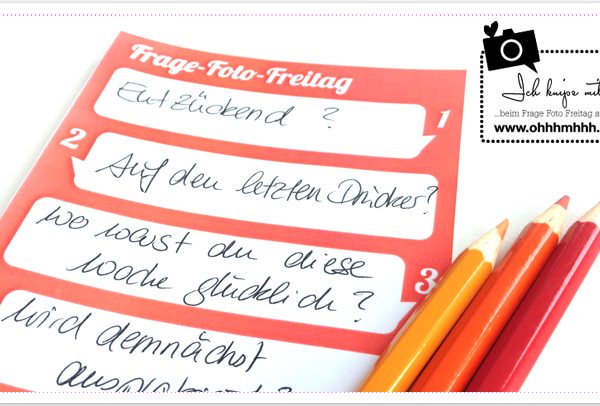 Frage-Foto-Freitag
Entzückend ?
1
2
Auf den letzten Drücker?
wo warst du diese
woche glücklich?
3
wird demnächst
ausprobiert?
Ich knipse mit
...beim Frage Foto Freitag a
www.ohhhmhhh.